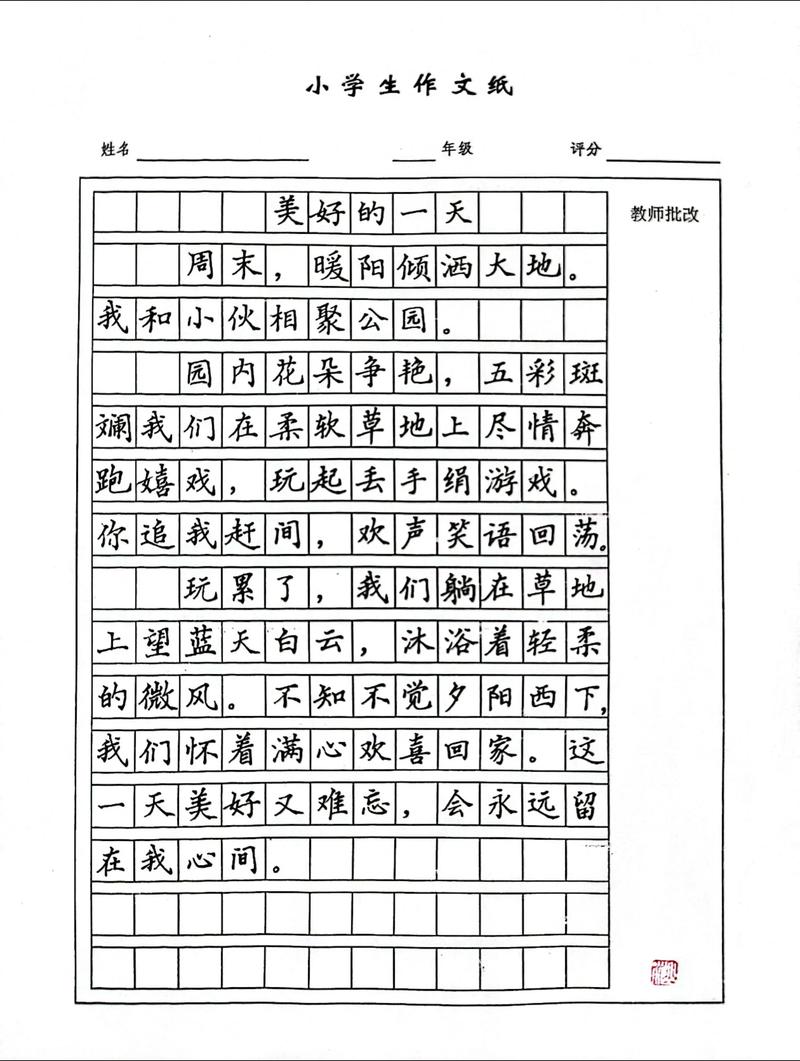 小学生作文纸
姓名 年级 评分
教师批改
美好的一天
周末，暖阳倾洒大地。
我和小伙相聚公园。
园内花朵争艳，五彩斑
斓我们在柔软草地上尽情奔
跑嬉戏，玩起丢手绢游戏。
你追我赶间，欢声笑语回荡。
玩累了，我们躺在草地
上望蓝天白云，沐浴着轻柔
的微风。不知不觉夕阳西下，
我们怀着满心欢喜回家。这
一天美好又难忘，会永远留
在我心间。